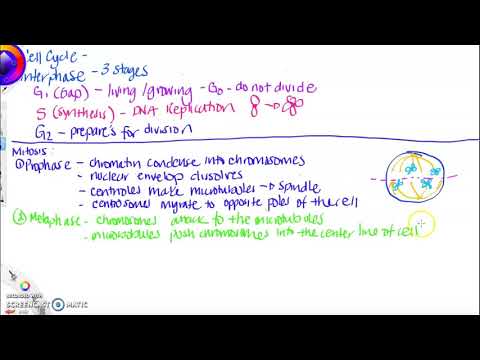 Cell Cycle -
Interphase - 3 stages
G1 (Gap) - living/growing - G0 - do not divide
S (synthesis) - DNA Replication
G2 - prepares for division
Mitosis:
① Prophase - chromatin condense into chromosomes
- nuclear envelop dissolves
- centrioles make microtubules → spindle
- centrosomes migrate to opposite poles of the cell
② Metaphase - chromosomes attach to the microtubules
- microtubules push chromosomes into the center line of cell
RECORDED WITH
SCREENCAST MATIC